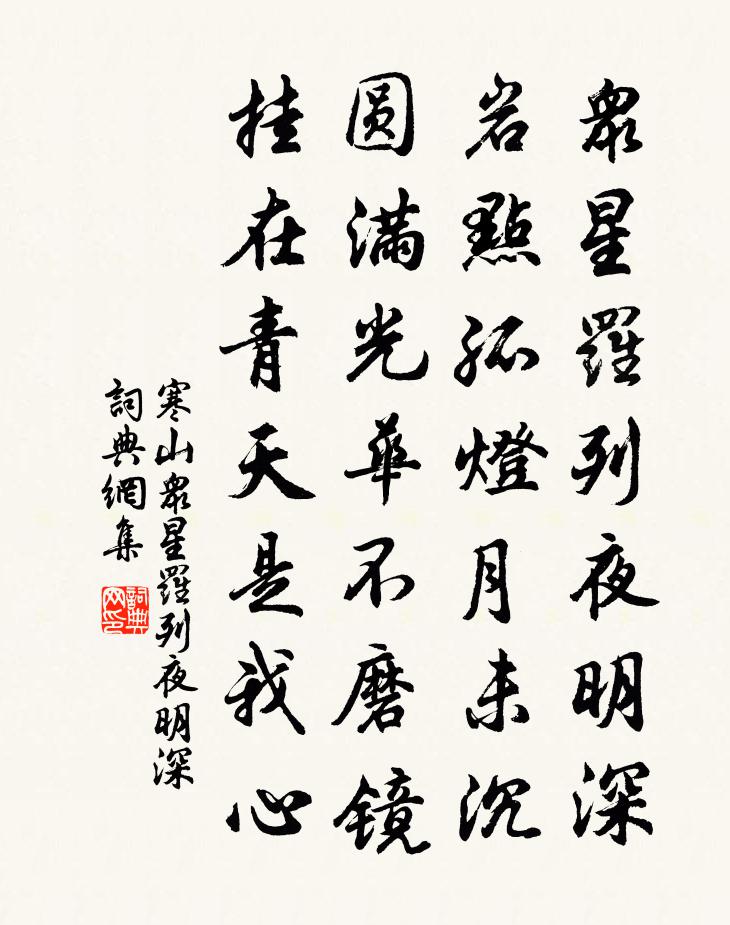 眾星羅列夜明深
岩點孤燈月未沉
圆滿光華不磨鏡
挂在青天是我心
寒山眾星羅列夜明深
詞典網集
詞典网印